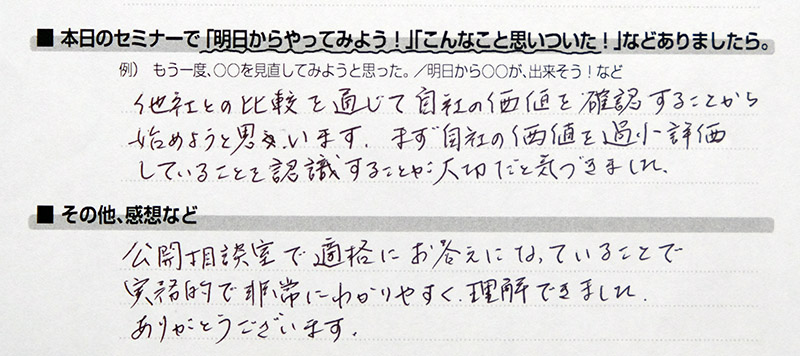 ■ 本日のセミナーで「明日からやってみよう！」「こんなこと思いついた！」などありましたら。
例） もう一度、〇〇を見直してみようと思った。／明日から〇〇が、出来そう！など
他社との比較を通じて自社の価値を確認することから
始めようと思います。まず自社の価値を過小評価
していることを認識することが大切だと気づきました。
■ その他、感想など
公開相談室で適格にお答えになっていることで
実務的で非常にわかりやすく理解できました。
ありがとうございます。